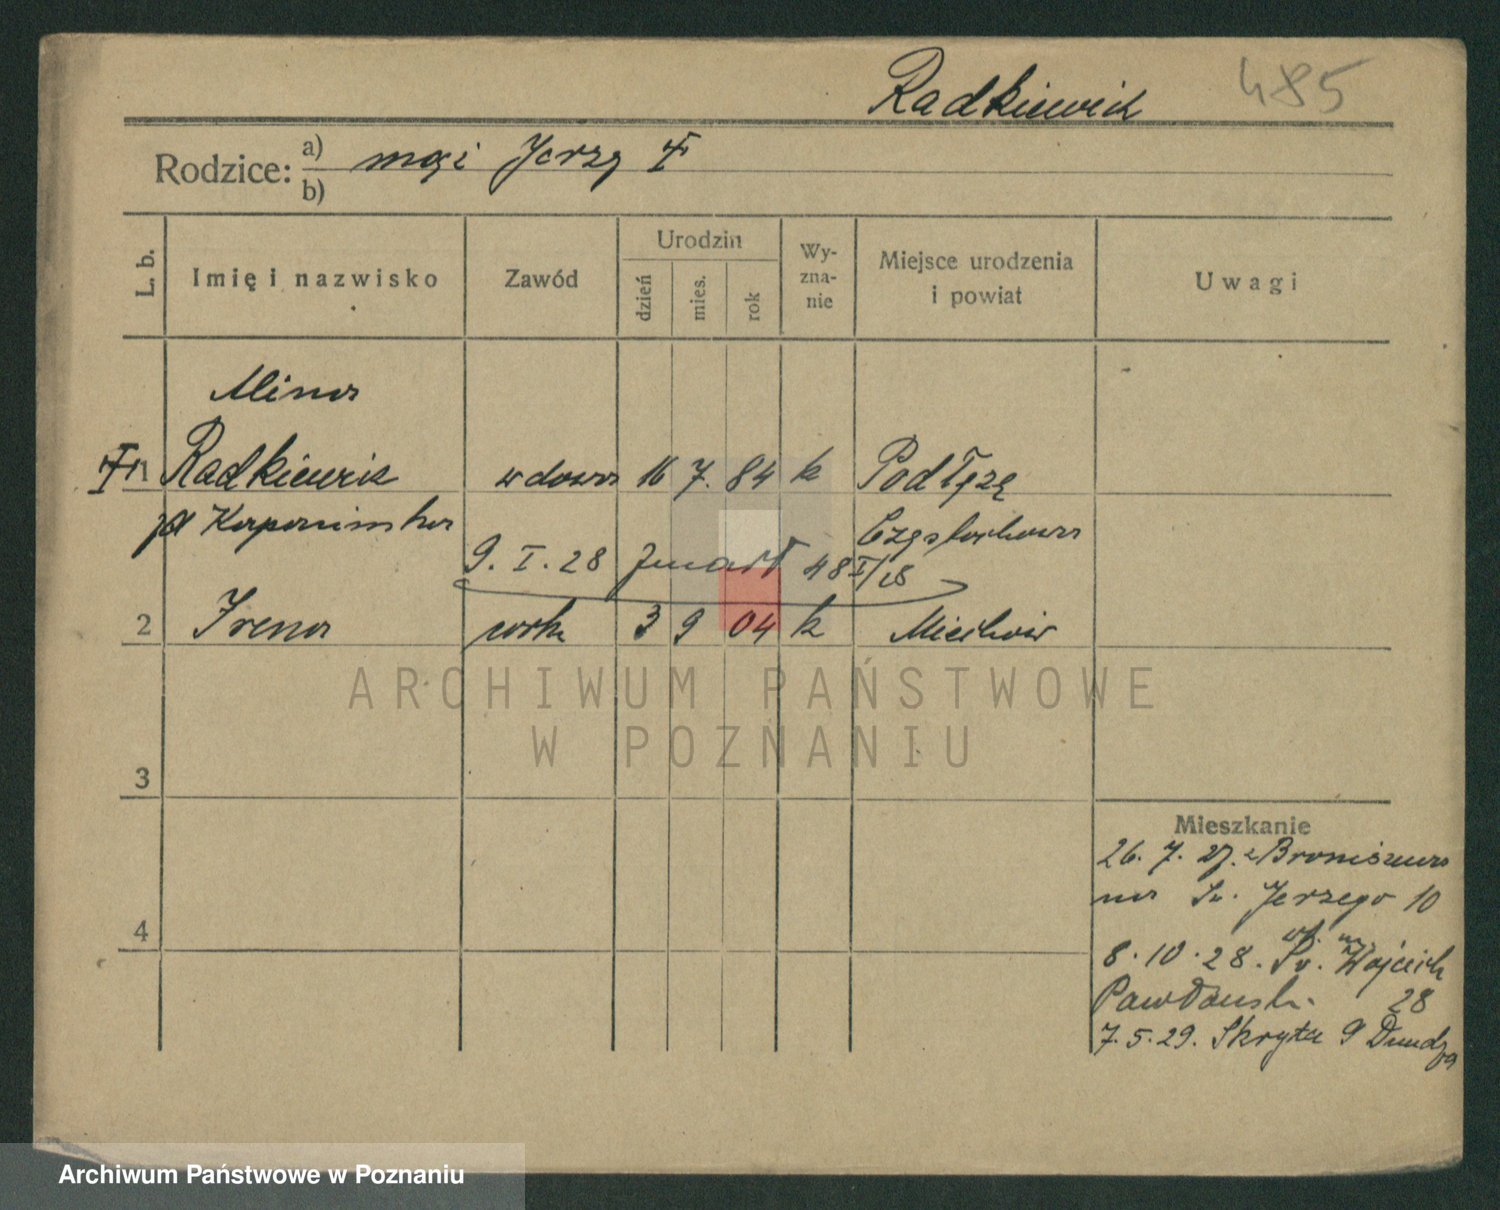 Radkiewicz 485
Rodzice: a) mąż Jerzy
b)
L. b. Imię i nazwisko Zawód Urodzin dzień mies. rok Wy-zna-nie Miejsce urodzenia i powiat Uwagi
Mina
1 Radkiewicz wdowa 16 7. 84 k Podłęże
Częstochowa
9. I. 28 zmarł 48 I/28
2 Irena córk 3 9 04 k Miechów
ARCHIWUM PAŃSTWOWE
W POZNANIU
3
4
Mieszkanie
26. 7. 27. z Broniszewa
na Św. Jerzego 10
8. 10. 28. Św. Wojciech
28
7. 5. 29. Skryta 9
Archiwum Państwowe w Poznaniu